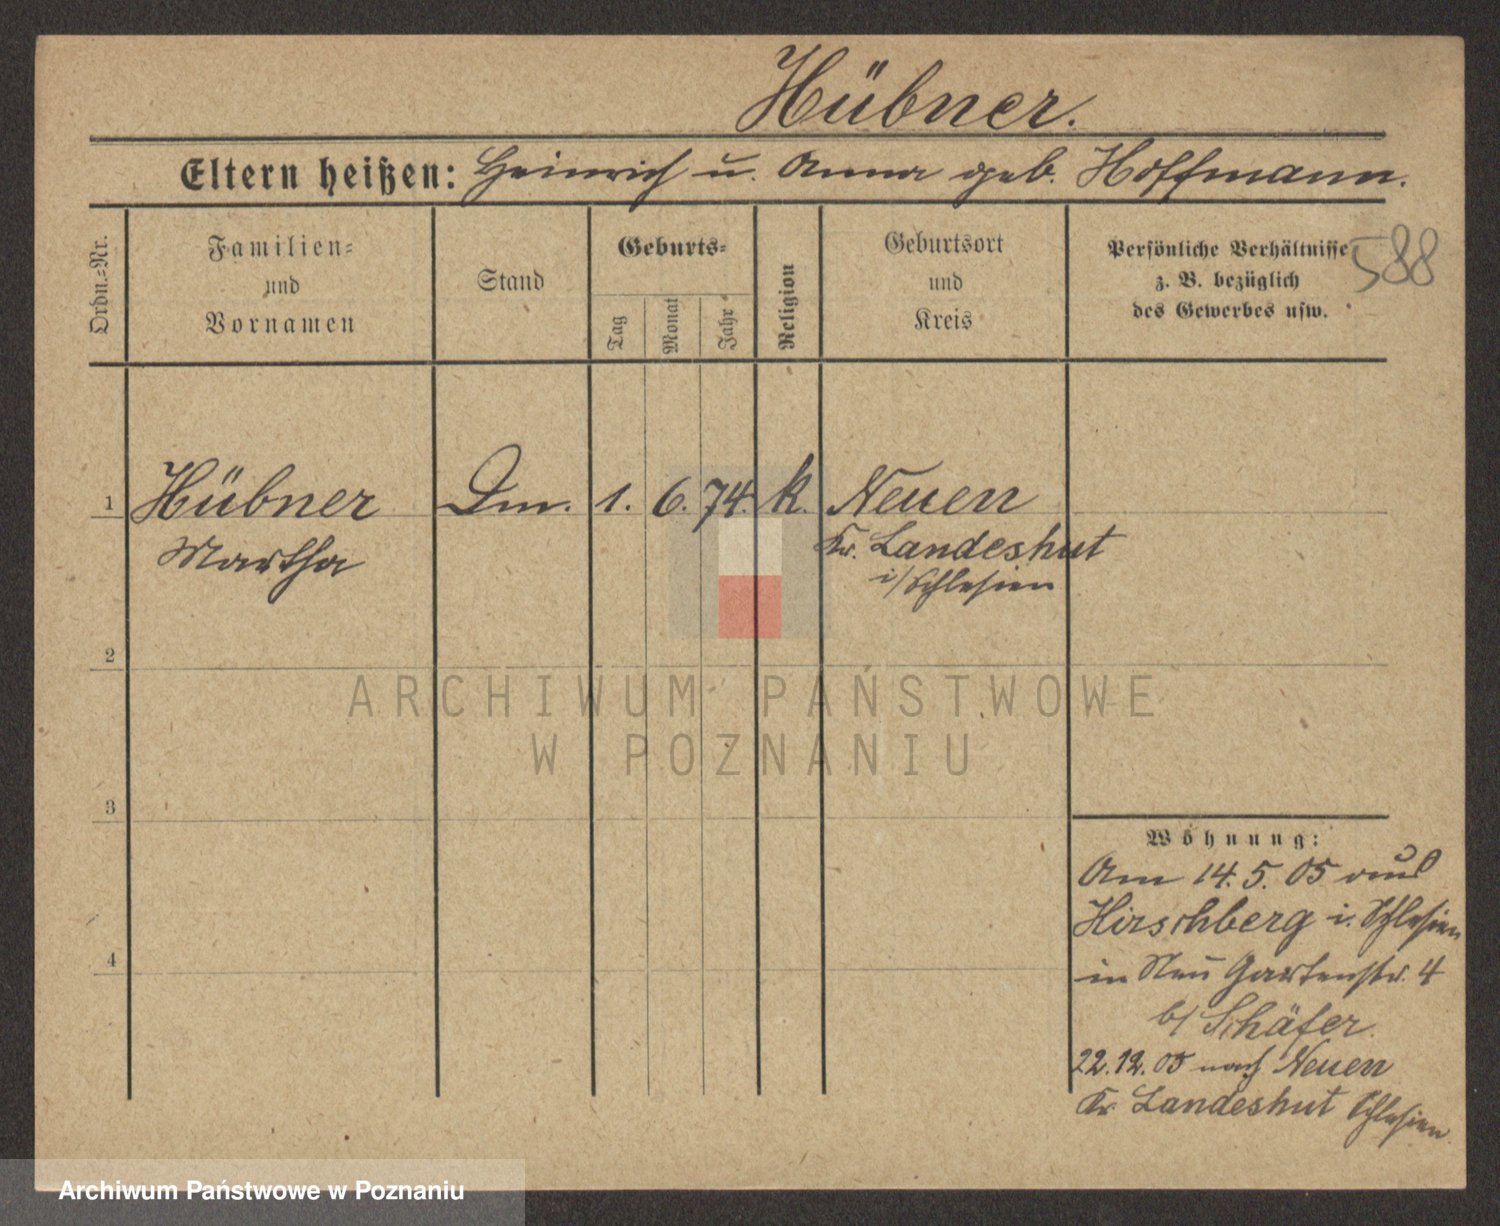 Hübner.
Eltern heißen: Heinrich u. Anna geb. Hoffmann.
Ordn.-Nr.
Familien-
und
Vornamen
Stand
Geburts-
Tag
Monat
Jahr
Religion
Geburtsort
und
Kreis
Persönliche Verhältnisse
z. B. bezüglich
des Gewerbes usw.
588
1 Hübner Dm. 1. 6. 74. k. Neuen
Martha Kr. Landeshut
i/Schlesien
2
3
4
Wohnung:
Am 14. 5. 05 aus
Hirschberg i. Schlesien
in Neu Gartenstr. 4
b/ Schäfer.
22. 12. 05 nach Neuen
Kr. Landeshut Schlesien
ARCHIWUM PAŃSTWOWE
W POZNANIU
Archiwum Państwowe w Poznaniu